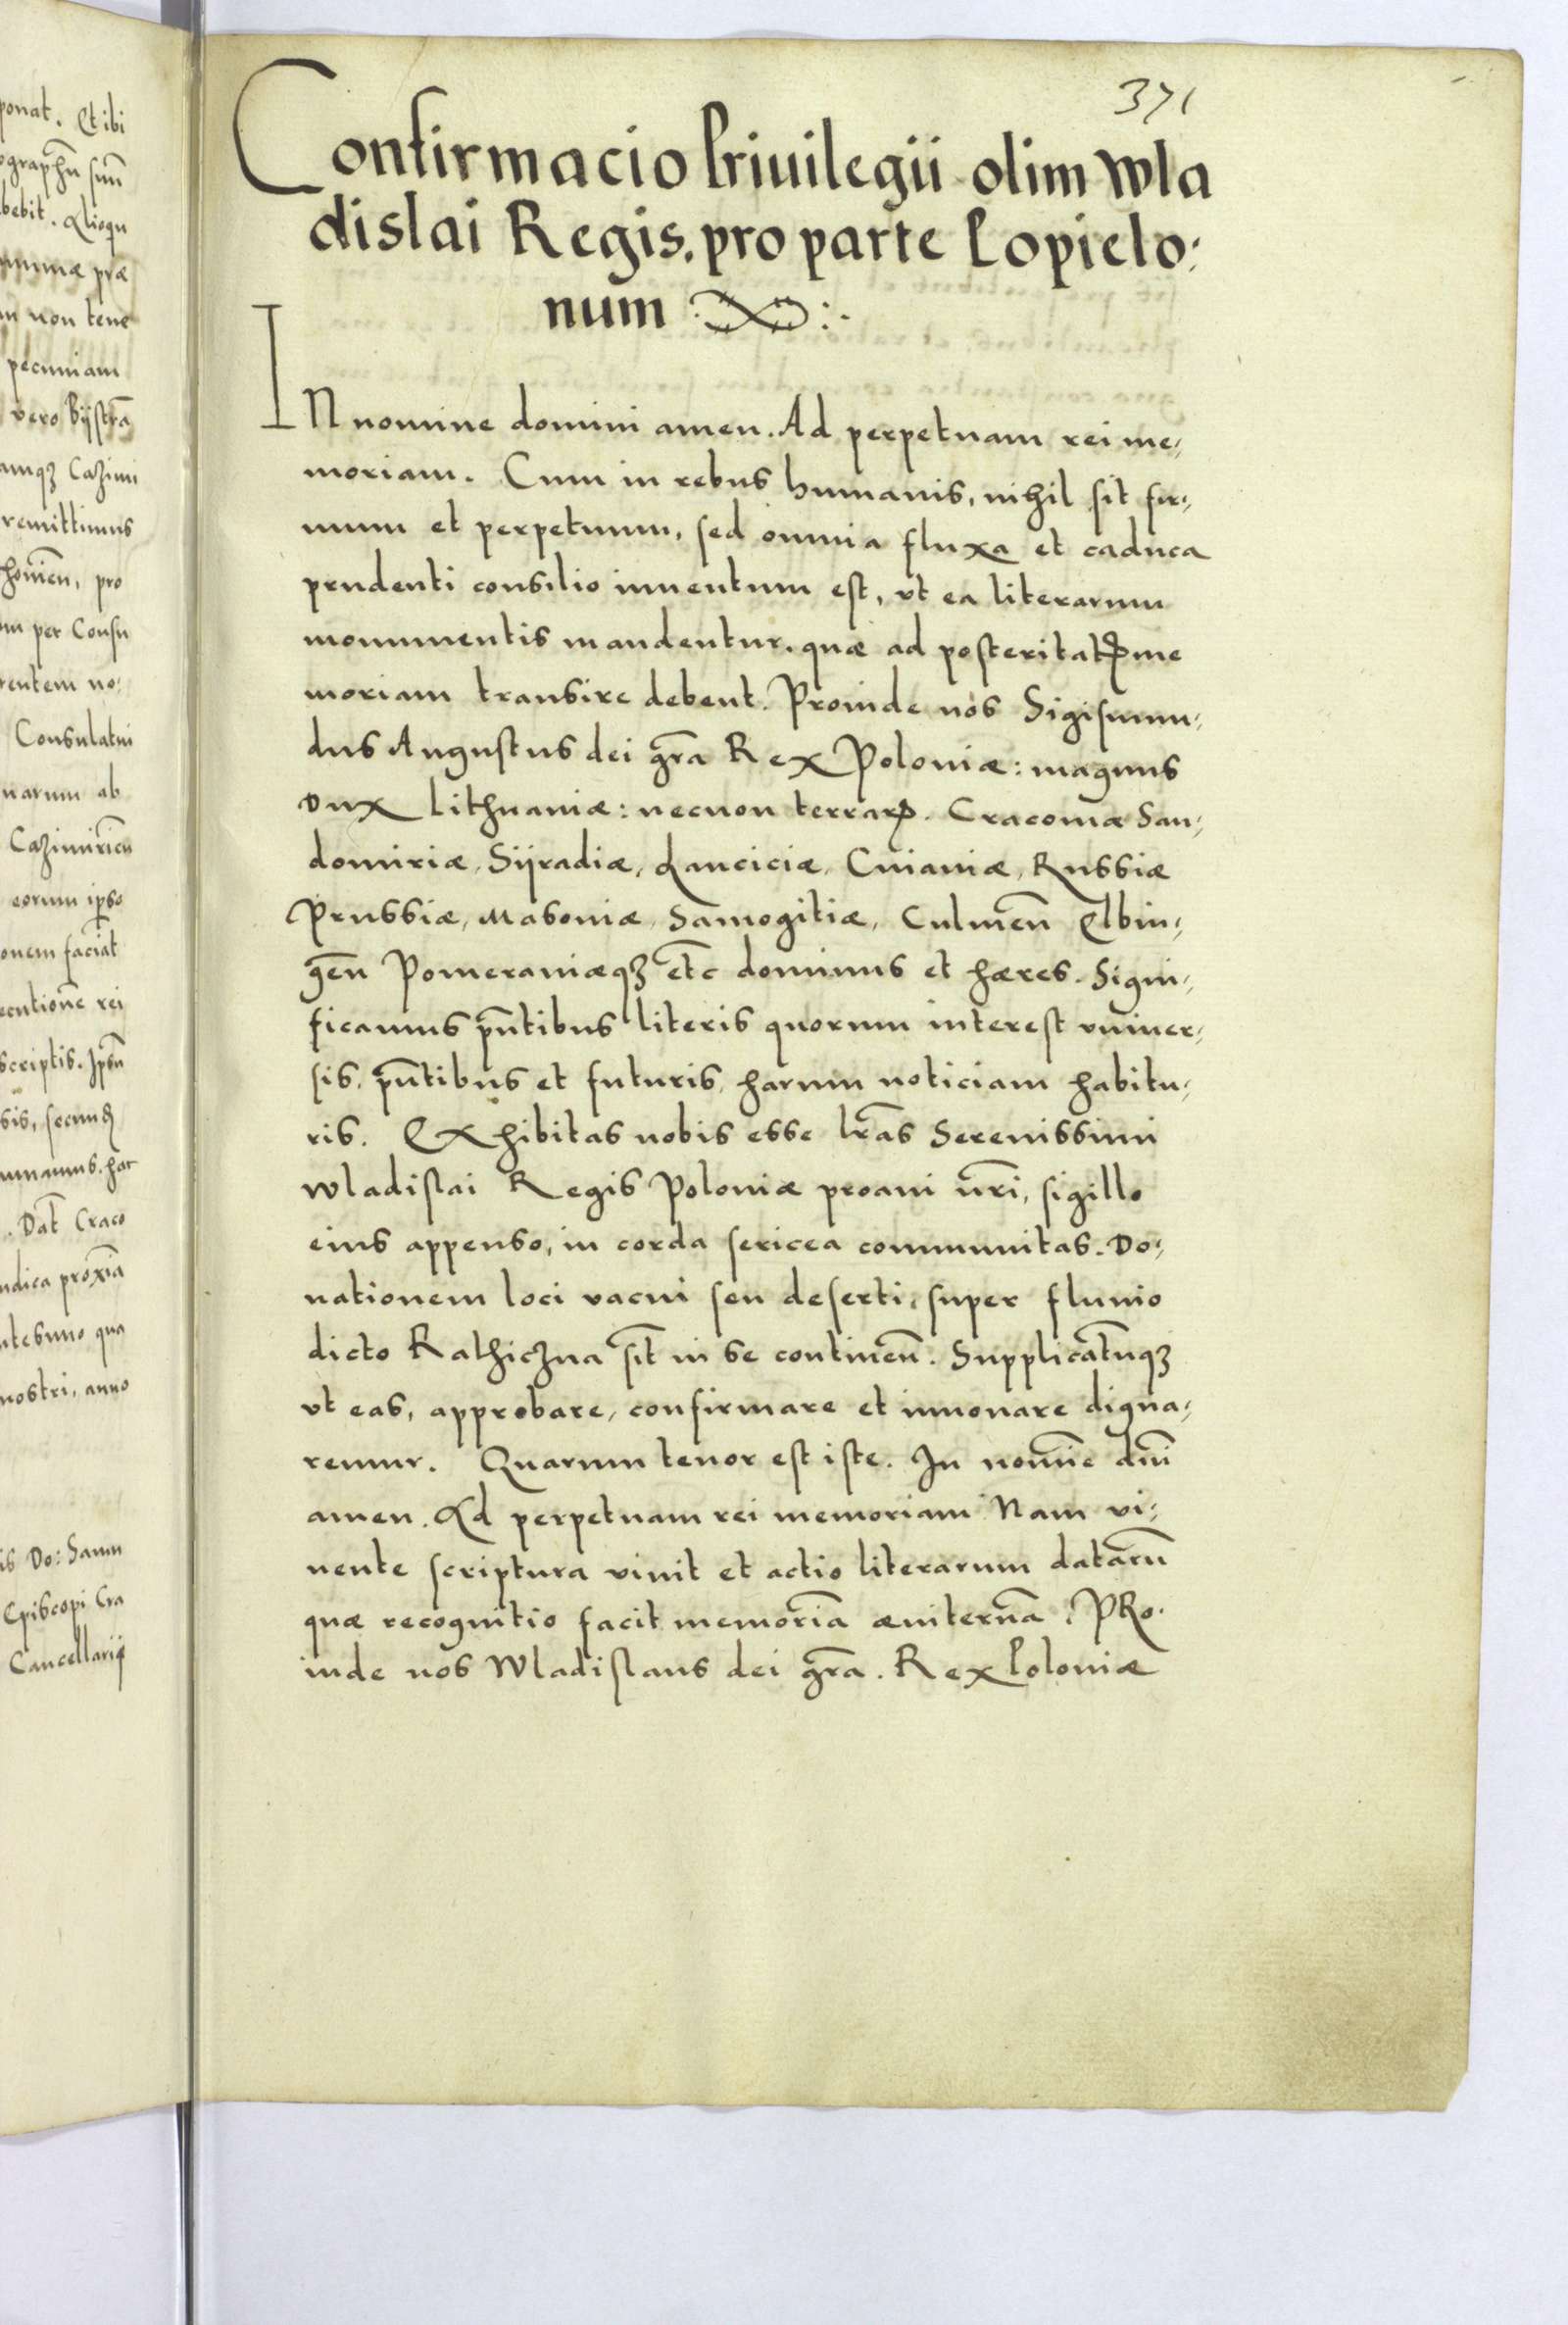 ponat. Et ibi
ographũ suũ
bebit. Alioqu
summæ præ
m non tene
pecuniam
vero Bÿstrã
amqꝫ Cazimi
remittimus
homieñ, pro
om per Consu
rentem no:
Consulatui
narum ab
Cazimiricñ
eorum ipso
onem faciat
ecutionẽ rei
scriptis. Ipsũ
sis, secund
munamus. har
. Dat̃ Craco
ndica proxĩa
ntesimo qua
nostri, anno
is Do: Samu
Episcopi Cra
Cancellarii
371
Confirmacio Priuilegii olim Wla
dislai Regis. pro parte Lopielo:
num
IN nomine domini amen. Ad perpetuam rei me,
moriam. Cum in rebus humanis, nihil sit fir,
mum et perpetuum, sed omnia fluxa et caduca
prudenti consilio inuentum est, vt ea literarum
monumentis mandentur. quæ ad posteritatꝭ me
moriam transire debent. Proinde nos Sigismun,
dus Augustus dei gr̃a Rex Poloniæ: magnus
Dux Lithuaniæ: necnon terrarꝝ. Cracouiæ San,
domiriæ, Sÿradiæ, Lanciciæ, Cuiauiæ, Russiæ
Prussiæ, Masoniæ, Samogitiæ, Culmeñ Elbin,
geñ Pomeraniæqꝫ et̃c dominus et hæres. Signi,
ficamus pñtibus literis quorum interest vniuer,
sis. pñtibus et futuris, harum noticiam habitu,
ris. Exhibitas nobis esse lr̃as Serenissimi
Wladislai Regis Poloniæ proaui nr̃i, sigillo
eius appenso, in corda sericea communitas. Do,
nationem loci vacui seu deserti, super fluuio
dicto Rathiczna sit̃ in se continen̄. Supplicatũqꝫ
vt eas, approbare, confirmare et innouare digna,
remur. Quarum tenor est iste. In nomĩe dñi
amen. Ad perpetuam rei memoriam Nam vi,
uente scriptura viuit et actio literarum datarũ
quæ recognitio facit memoriã æuiternã. PRo.
inde nos Wladislaus dei gr̃a. Rex Poloniæ